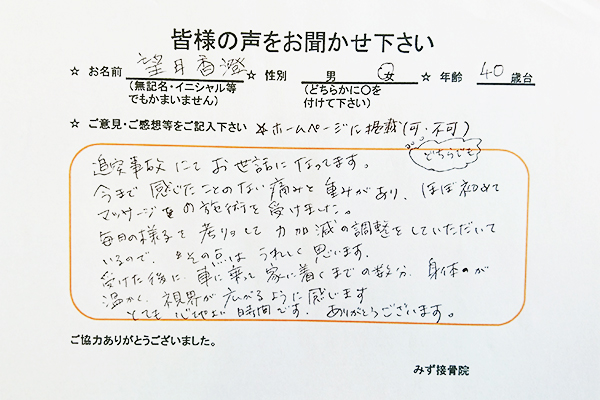 皆様の声をお聞かせ下さい
☆ お名前 望月香澄 ☆ 性別 男 女 ☆ 年齢 40 歳台
(無記名・イニシャル等でもかまいません) (どちらかに〇を付けて下さい)
☆ ご意見・ご感想等をご記入下さい ☆ホームページに掲載(可・不可)
どちらでも
追突事故にてお世話になってます。
今まで感じたことのない痛みと重みがあり、ほぼ初めて
マッサージの施術を受けました。
毎日の様子を考りょして力加減の調整をしていただいて
いるので、その点はうれしく思います。
受けた後に、車に乗って家に着くまでの数分、身体が
温かく、視界が広がるように感じます
とても心地よい時間です。ありがとうございます。
ご協力ありがとうございました。
みず接骨院